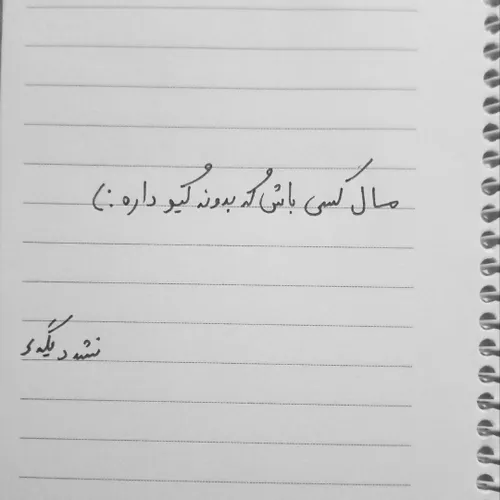 مال کسی باش که بدونه کیو داره :)
نشد دیگه